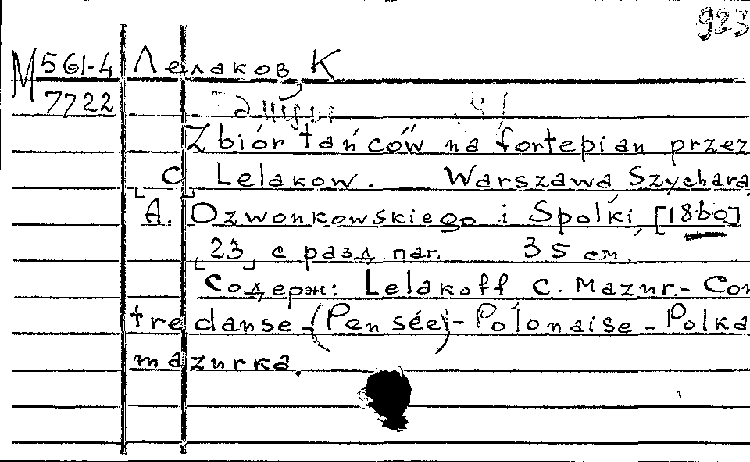 923
М 561-4 Лелаков, К
7722 Танцы
Zbiór tańców na fortepian przez
C. Lelakow. Warszawa, Szychara
A. Dzwonkowskiego i Spolki, [1860]
[23] с разд. паг. 35 см.
Содерж: Lelakoff C. Mazur.- Con
tredanse-(Pensée)-Polonaise-Polka
mazurka.